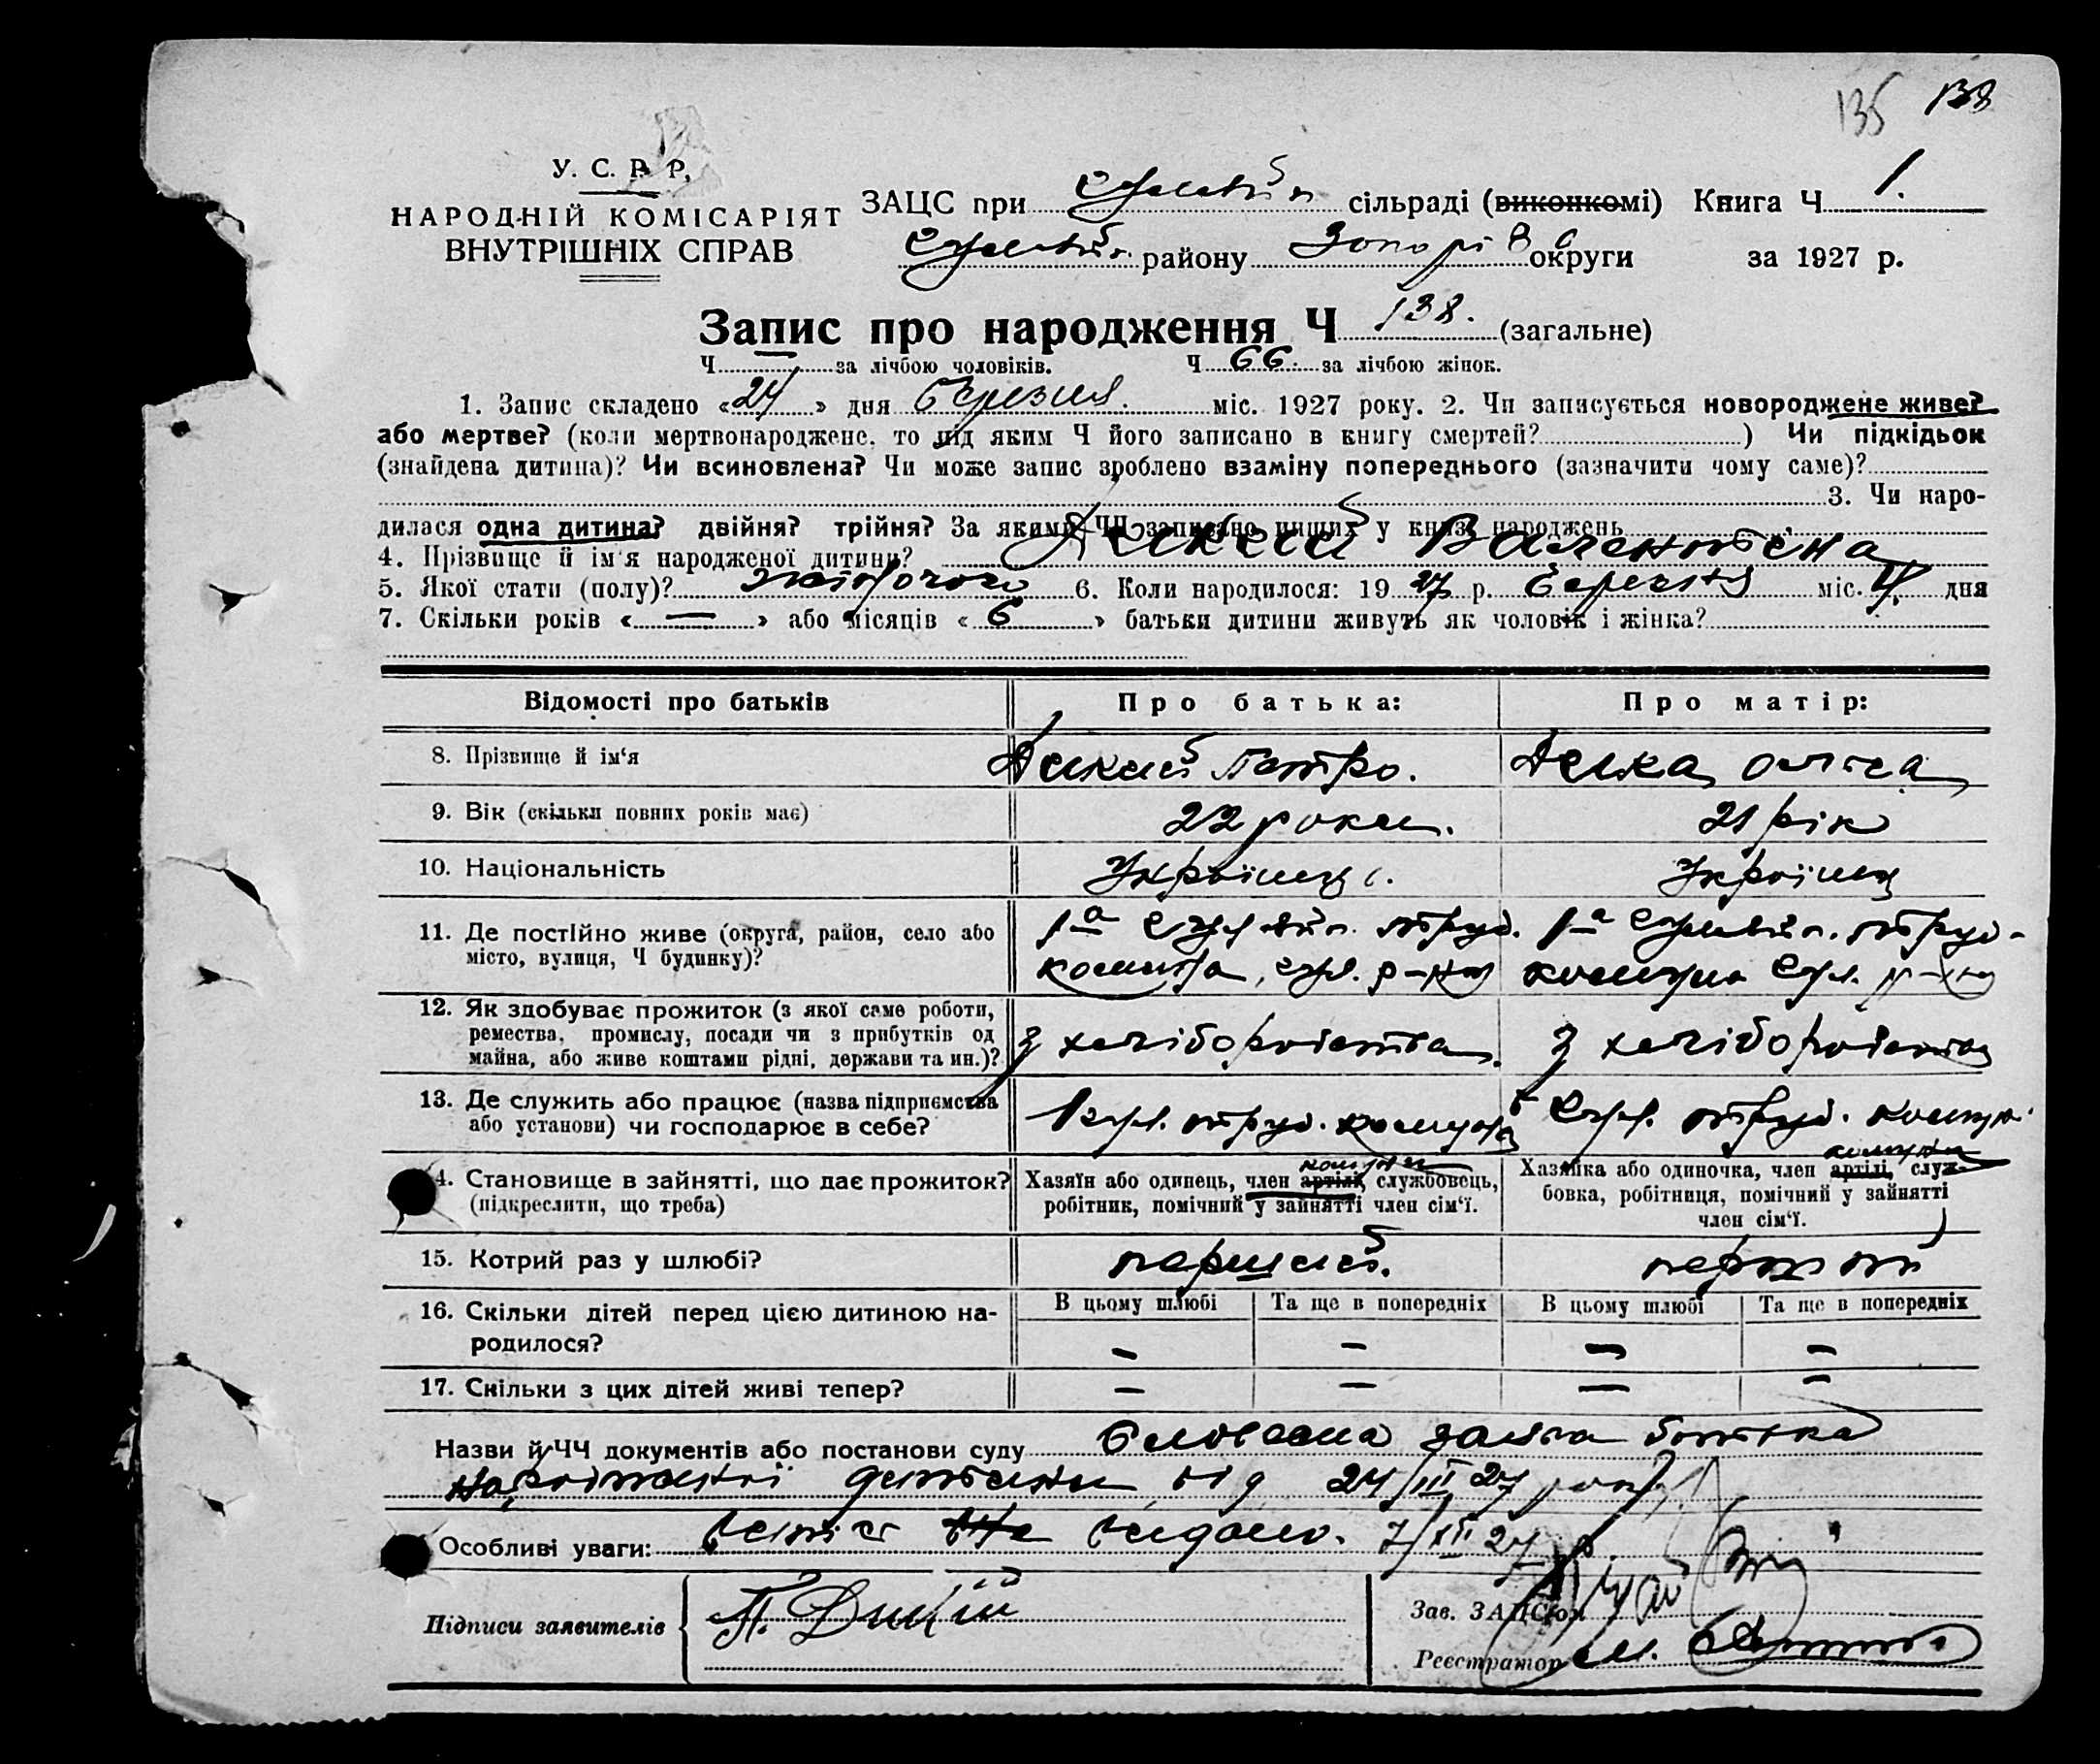 135 138
У. С. Р. Р.
НАРОДНІЙ КОМІСАРІЯТ
ВНУТРІШНІХ СПРАВ
ЗАЦС при сільраді (виконкомі) Книга Ч 1.
району Запоріз округи за 1927 р.
Запис про народження Ч 138. (загальне)
Ч — за лічбою чоловіків. Ч 66. за лічбою жінок.
1. Запис складено «24» дня березня міс. 1927 року. 2. Чи записується новороджене живе?
або мертве? (коли мертвонароджене, то під яким Ч його записано в книгу смертей? ) Чи підкідьок
(знайдена дитина)? Чи всиновлена? Чи може запис зроблено взаміну попереднього (зазначити чому саме)?
3. Чи наро-
дилася одна дитина? двійня? трійня? За якими ЧЧ записано инших у книзі народжень
4. Прізвище й ім'я народженої дитини? Дикий Валентина
5. Якої стати (полу)? жіночого 6. Коли народилося: 19 27 р. березня міс. дня
7. Скільки років « — » або місяців « 6 » батьки дитини живуть як чоловік і жінка?
Відомості про батьків Про батька: Про матір:
8. Прізвище й ім'я Дикий Петро. Дика
9. Вік (скільки повних років має) 22 роки. 21 рік
10. Національність Україн Україн
11. Де постійно живе (округа, район, село або
місто, вулиця, Ч будинку)? 1а труд. 1а труд.
комуна, р-ну комуна р-ну
12. Як здобуває прожиток (з якої саме роботи,
ремества, промислу, посади чи з прибутків од
майна, або живе коштами рідні, держави та ин.)? З хліборобства. З хліборобства
13. Де служить або працює (назва підприємства
або установи) чи господарює в себе? труд. комуна труд. комун.
14. Становище в зайнятті, що дає прожиток?
(підкреслити, що треба)
комуни
Хазяїн або одинець, член артілі, службовець,
робітник, помічний у зайнятті член сім'ї.
комуни
Хазяйка або одиночка, член артілі, служ-
бовка, робітниця, помічний у зайнятті
член сім'ї.
15. Котрий раз у шлюбі? перший. перший
16. Скільки дітей перед цією дитиною на-
родилося?
В цьому шлюбі Та ще в попередніх В цьому шлюбі Та ще в попередніх
— — — —
17. Скільки з цих дітей живі тепер? — — — —
Назви й ЧЧ документів або постанови суду Словесна заява батька
дитини від 24/III 27 року
Особливі уваги: видано. 27
Підписи заявителів П. Дикий
Зав. ЗАЦСом
Реєстратор